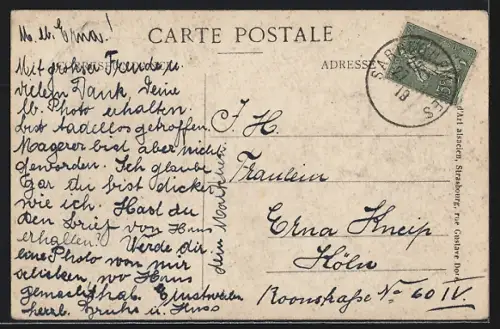 M. lb. Erna!
CARTE POSTALE
ADRESSE
Mit großer Freude u.
vielem Dank, Deine
lb. Photo erhalten.
bist tadellos getroffen.
Magerer bist aber nicht
geworden. Ich glaube
gar du bist dicker
wie ich. Hast du
den Brief von Hans
erhalten? Werde dir
eine Photo von mir
schicken, wo Hans
gemacht hat. Einstweilen
herzl. Gruß u. Kuss
dein
SARRE
19
I. H.
Fräulein
Erna Kneip
Köln
Roonstraße No 60 IV.
d'Art alsacien, Strasbourg, rue Gustave Doré